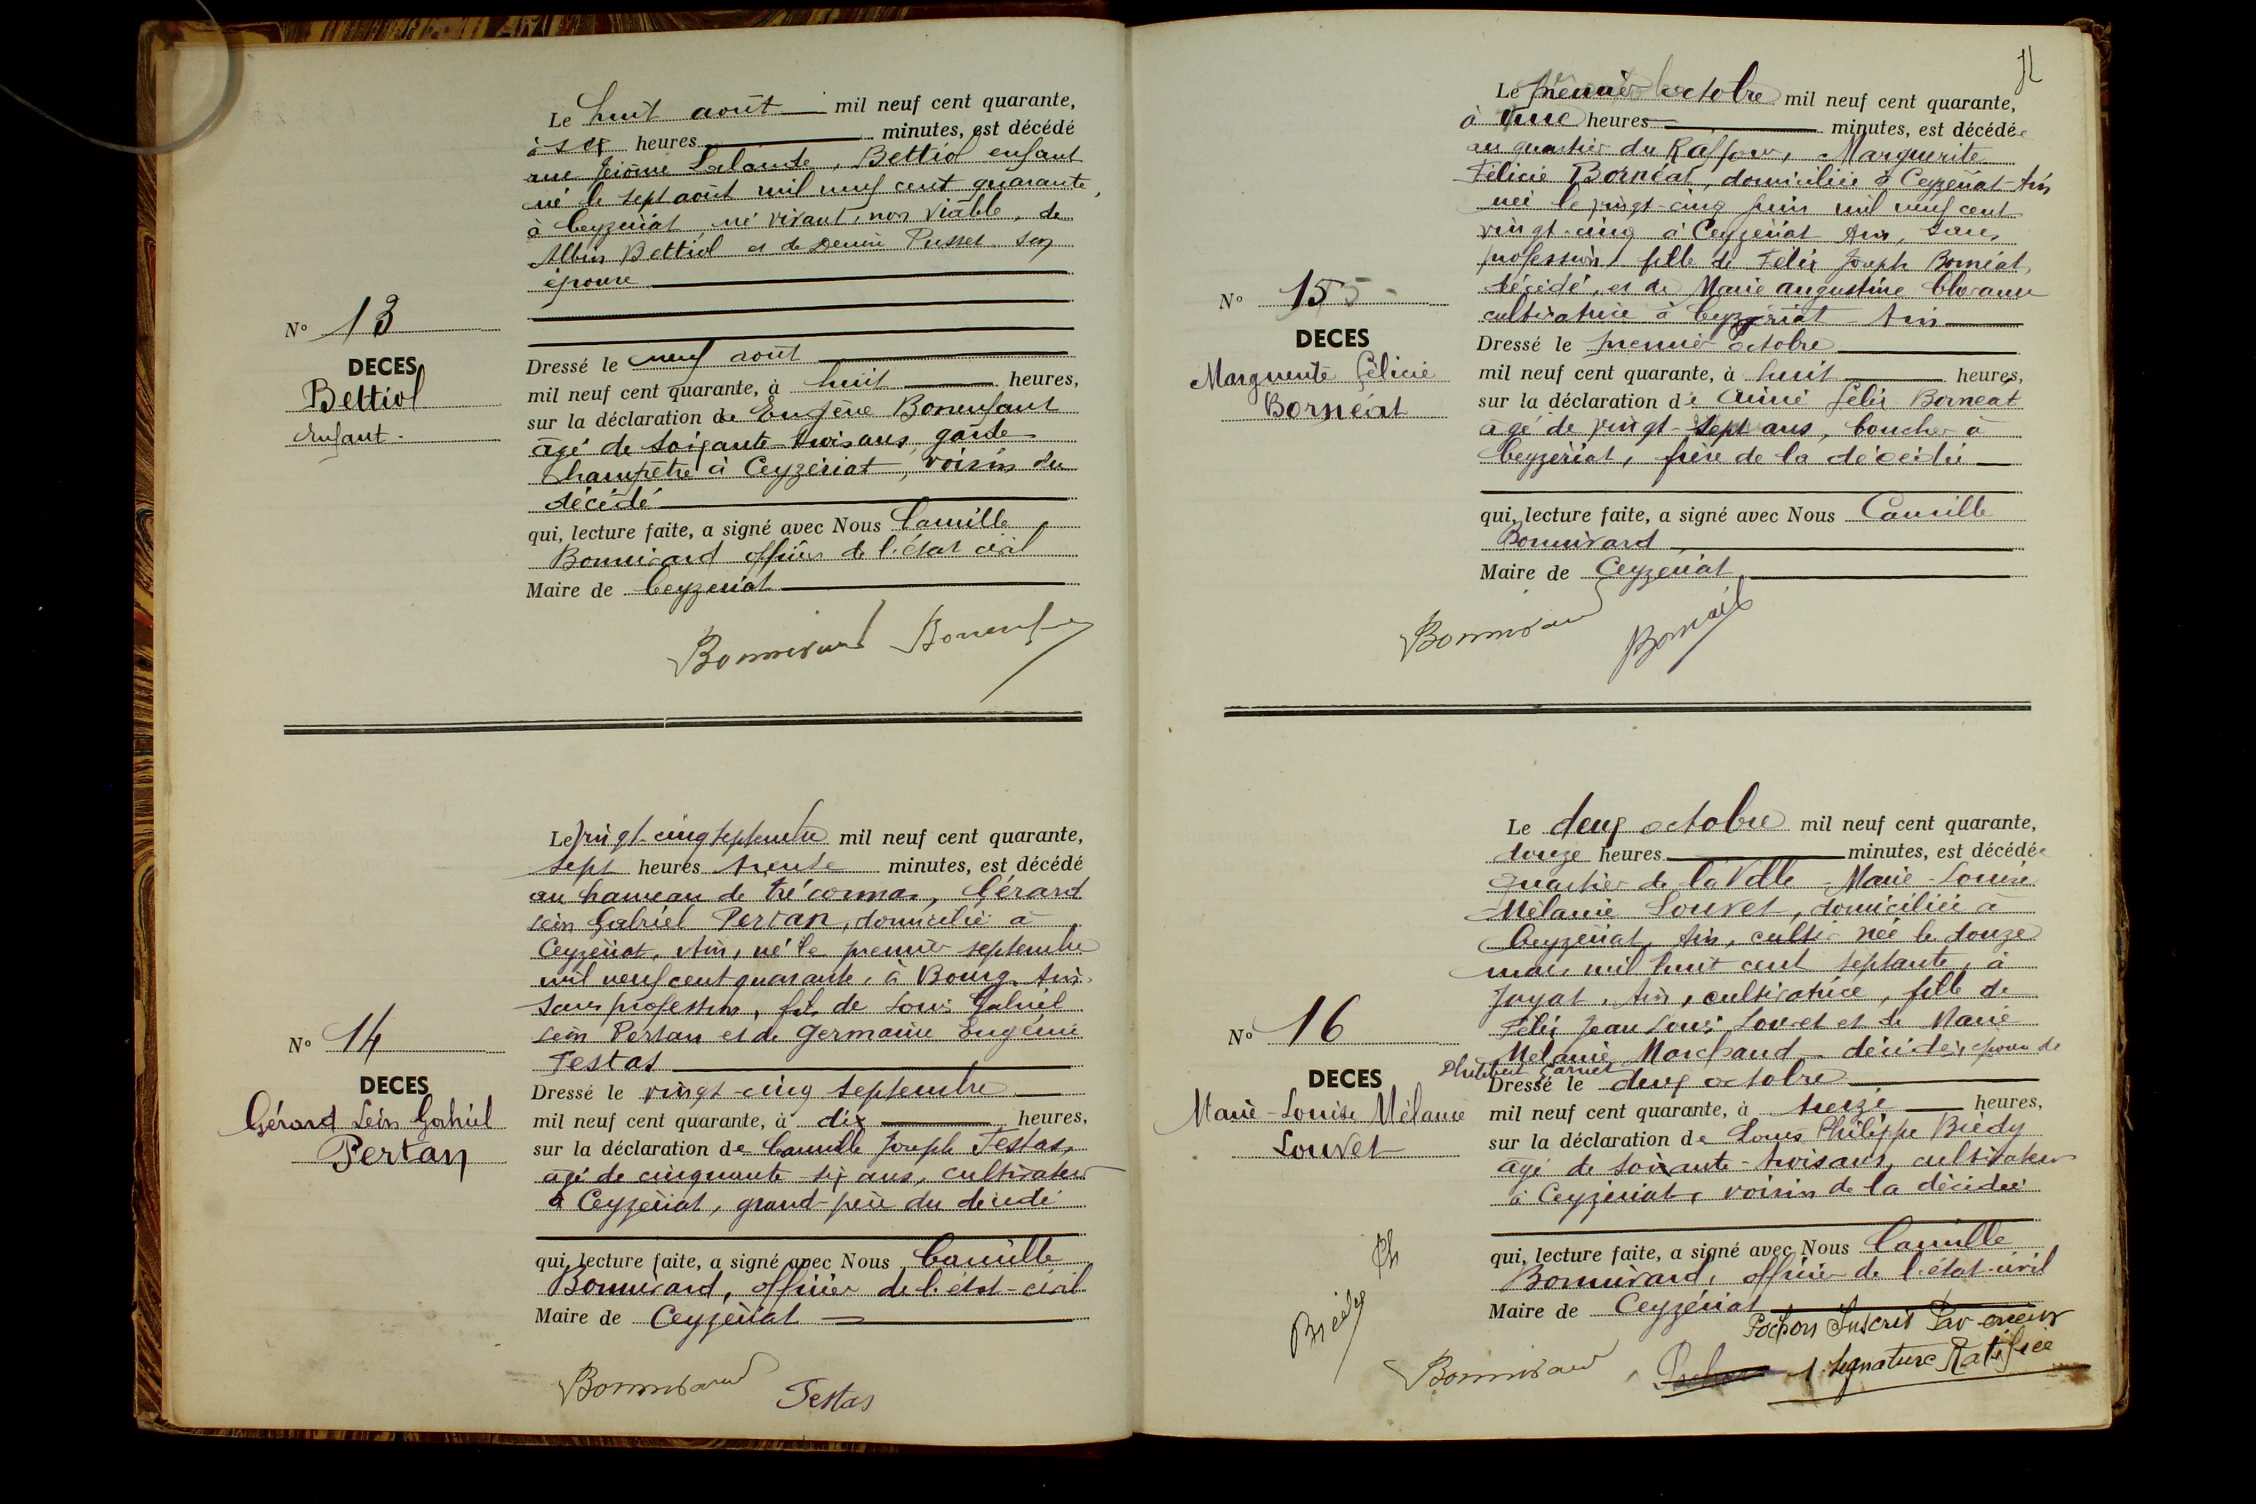 Le huit août mil neuf cent quarante,
à six heures minutes, est décédé
rue Jérôme Lalande, Bettiol enfant
né le sept août mil neuf cent quarante,
à Ceyzériat né vivant, non viable, de
Albin Bettiol et de Denise Pusset son
épouse
N° 13
DECES
Bettiol
enfant.
Dressé le neuf août
mil neuf cent quarante, à huit heures,
sur la déclaration de Eugène Bonenfant
âgé de soixante trois ans garde
champêtre à Ceyzériat, voisin du
décédé
qui, lecture faite, a signé avec Nous Camille
Bonnivard officier de l'état civil
Maire de Ceyzériat
Bonnivard Bonenfant
Le vingt-cinq septembre mil neuf cent quarante,
sept heures trente minutes, est décédé
au hameau de Trécornas, Gérard
Léon Gabriel Pertan, domicilié à
Ceyzériat, Ain, né le premier septembre
mil neuf cent quarante, à Bourg Ain
sans profession, fils de Louis Gabriel
Léon Pertan et de Germaine Eugénie
Testas
N° 14
DECES
Gérard Léon Gabriel
Pertan
Dressé le vingt-cinq septembre
mil neuf cent quarante, à dix heures,
sur la déclaration de Camille Joseph Testas,
âgé de cinquante-six ans, cultivateur
à Ceyzériat, grand-père du décédé
qui, lecture faite, a signé avec Nous Camille
Bonnivard, officier de l'état-civil
Maire de Ceyzériat
Bonnivard Testas
Le premier octobre mil neuf cent quarante,
à une heures minutes, est décédée
au quartier du Raffour, Marguerite
Félicie Bornéat, domiciliée à Ceyzériat-Ain
née le vingt-cinq juin mil neuf cent
vingt-cinq à Ceyzériat Ain, sans
profession, fille de Félix Joseph Bornéat,
décédé, et de Marie Augustine
cultivatrice à Ceyzériat Ain
N° 15
DECES
Marguerite Félicie
Bornéat
Dressé le premier octobre
mil neuf cent quarante, à huit heures,
sur la déclaration de Aimé Félix Bornéat
âgé de vingt-sept ans, boucher à
Ceyzériat, frère de la décédée
qui, lecture faite, a signé avec Nous Camille
Bonnivard
Maire de Ceyzériat
Bonnivard Bornéat
Le deux octobre mil neuf cent quarante,
douze heures minutes, est décédée
quartier de la Ville - Marie-Louise
Mélanie Louvet, domiciliée à
Ceyzériat, Ain, née le douze
mars mil huit cent septante, à
Jayat, Ain, cultivatrice, fille de
Félix Jean Louis Louvet et de Marie
Mélanie Marchand décédés, épouse de
Philibert Carnet
N° 16
DECES
Marie-Louise Mélanie
Louvet
Dressé le deux octobre
mil neuf cent quarante, à treize heures,
sur la déclaration de Louis Philippe Biédy
âgé de soixante-trois ans, cultivateur
à Ceyzériat, voisin de la décédée
qui, lecture faite, a signé avec Nous Camille
Bonnivard, officier de l'état-civil
Maire de Ceyzériat
Pochon Inscrit Par erreur
1 signature Ratifiée
Biédy Ph
Bonnivard